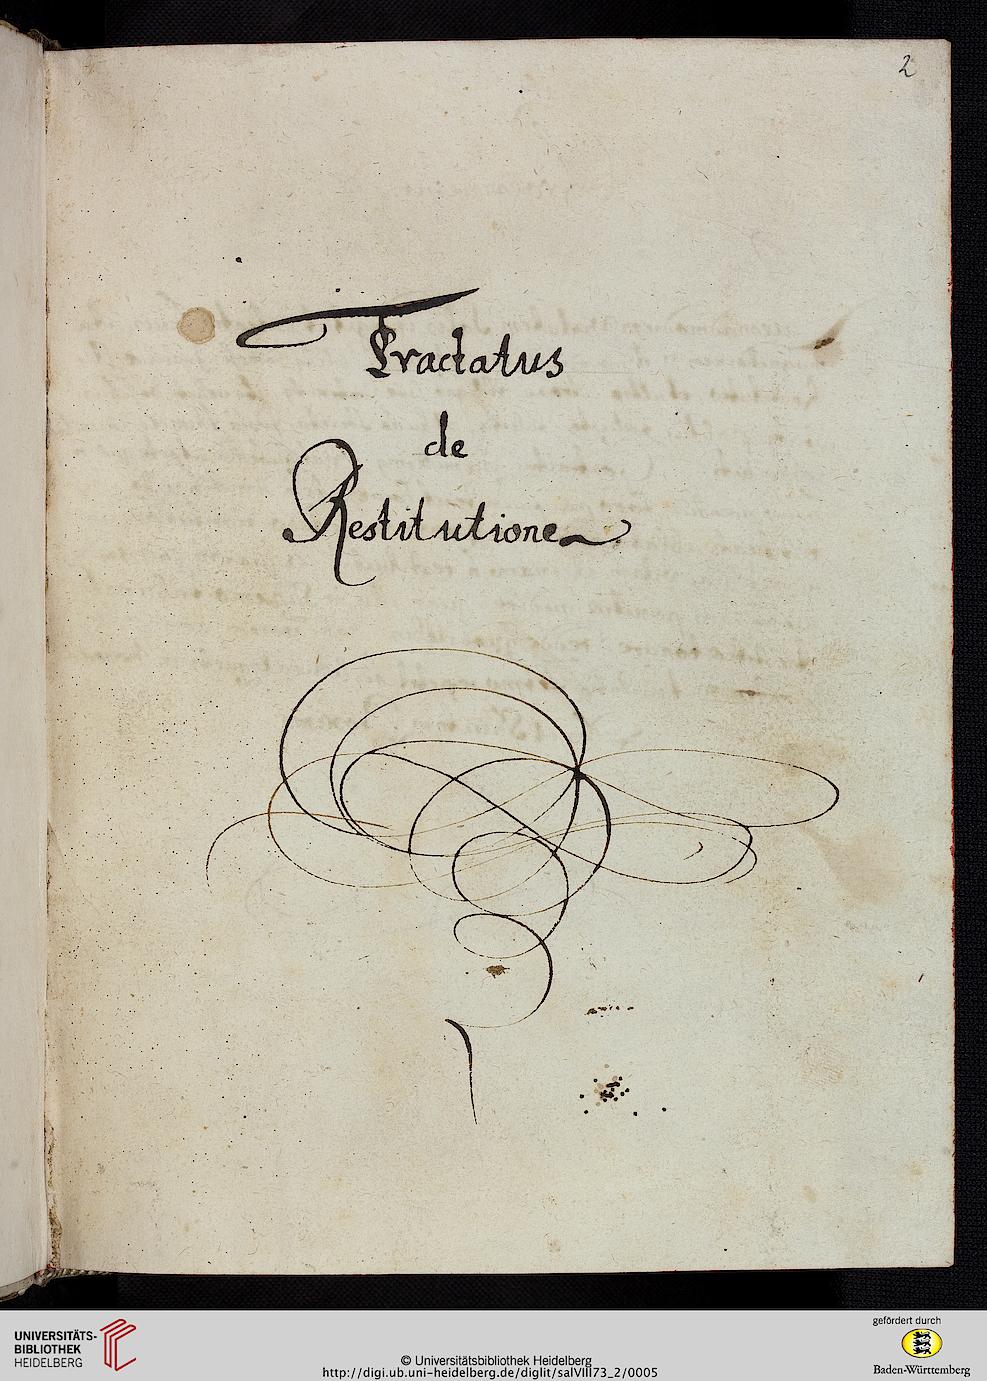 2
Tractatus
de
Restitutione
UNIVERSITÄTS-
BIBLIOTHEK
HEIDELBERG
© Universitätsbibliothek Heidelberg
http://digi.ub.uni-heidelberg.de/diglit/salVIII73_2/0005
gefördert durch
Baden-Württemberg